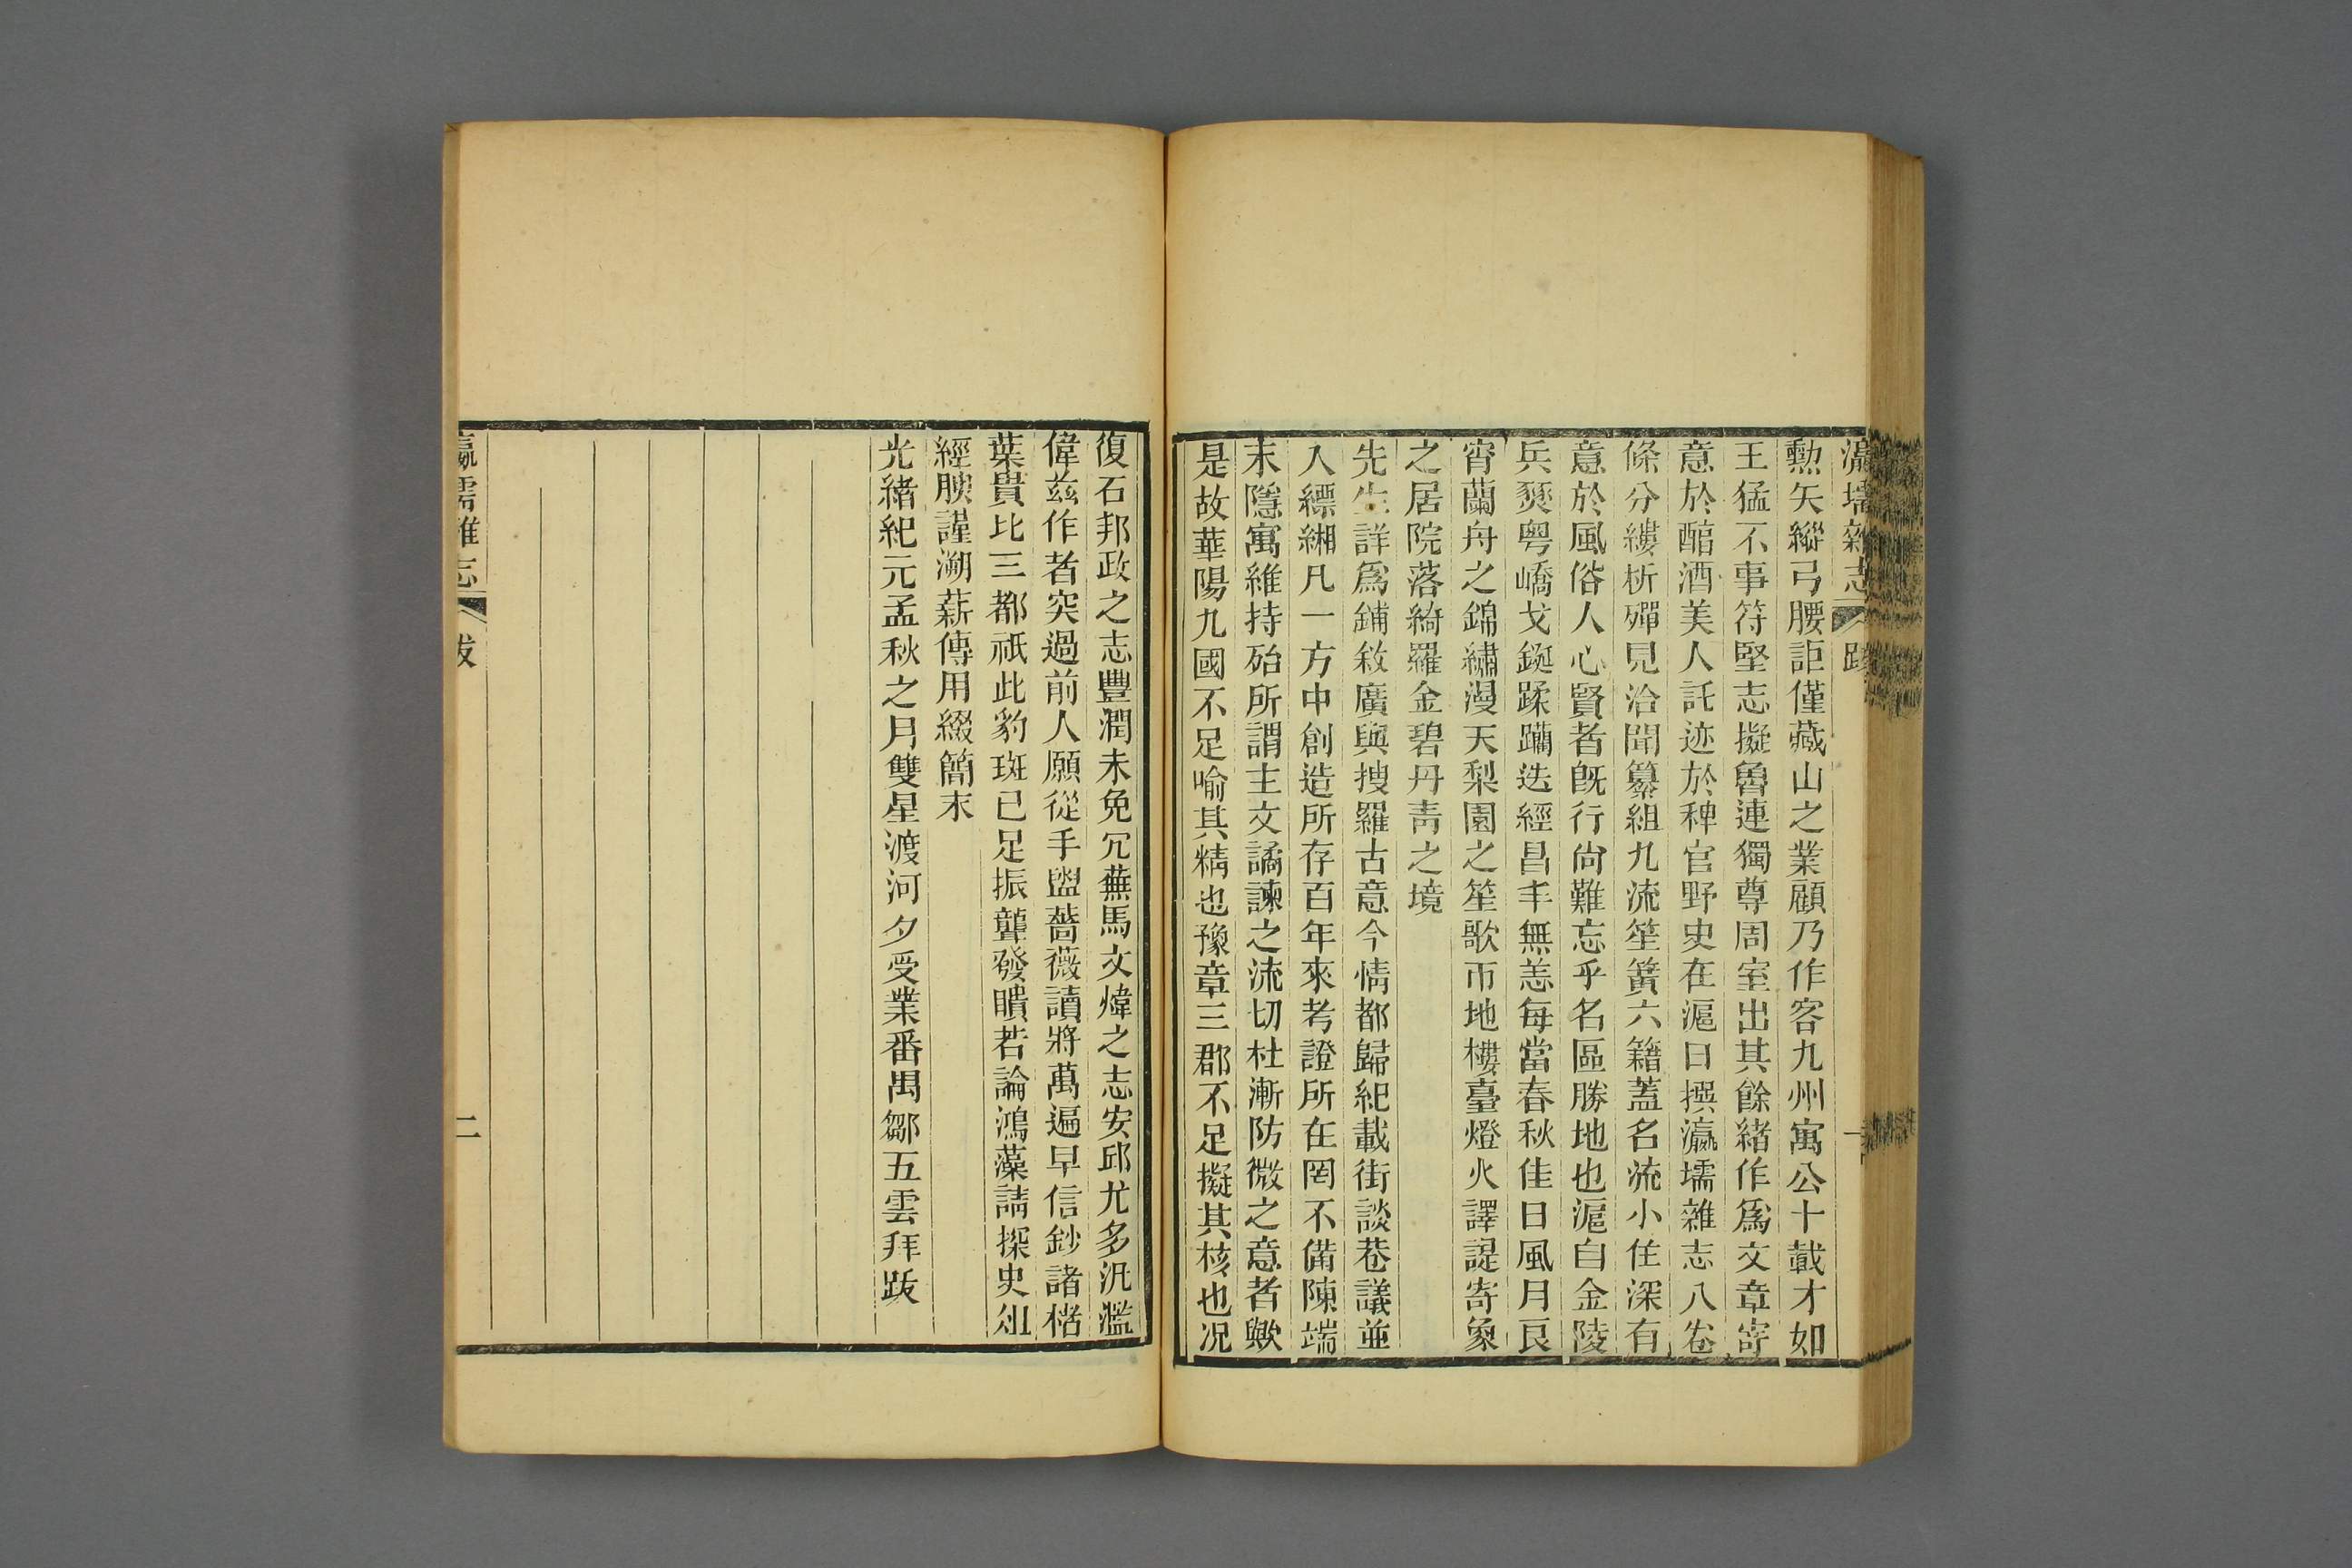 瀛壖雜志 跋 一
勲矢縱弓腰詎僅藏山之業顧乃作客九州寓公十載才如
王猛不事符堅志擬魯連獨尊周室出其餘緒作爲文章寄
意於醕酒美人託迹於稗官野史在滬日撰瀛壖雜志八卷
條分縷析殫見洽聞纂組九流笙簧六籍蓋名流小住深有
意於風俗人心賢者旣行尙難忘乎名區勝地也滬自金陵
兵燹粤嶠戈鋋蹂躪迭經昌丰無恙每當春秋佳日風月良
宵蘭舟之錦繡漫天梨園之笙歌帀地樓臺燈火譯諟寄象
之居院落綺羅金碧丹靑之境
先生詳爲鋪敘廣輿搜羅古意今情都歸紀載街談巷議並
入縹緗凡一方中創造所存百年來考證所在罔不備陳端
末隱寓維持殆所謂主文譎諫之流切杜漸防微之意者歟
是故華陽九國不足喻其精也豫章三郡不足擬其核也況
復石邦政之志豐潤未免冗蕪馬文煒之志安邱尤多汎濫
偉茲作者突過前人願從手盥薔薇讀將萬遍早信鈔諸楮
葉貴比三都祇此豹斑已足振聾發聵若論鴻藻請探史俎
經腴謹溯薪傳用綴簡末
光緖紀元孟秋之月雙星渡河夕受業番禺鄒五雲拜跋
瀛壖雜志 跋 二